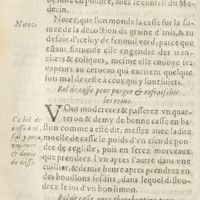 decin.
Notez. Notez, que l'on monde la casse sur la fumee
de la decoction de graine d'anis, & au
defaut d'icelle de fenouil verd, parce que
estant flatueuse elle engendre des tranchees,
& coliques, mesme elle envoye les
vapeurs au cerueau qui excitent quelquefois
mal de teste à ceux qui y sont sujets.
Bol de casse pour purger & rafraischir
les reins.
Vous monderez & passerez vn quarteron
& demy de bonne casse en ba-
Ce bol de casse
ston comme a esté dit, mettez auec ladite
moelle de casse le poids d'vn escu de poudre
de reglisse, puis en ferez morceaux
que prendrez l'vn apres l'autre dans vne
cuillier, & demie heure apres prendrez vn
des bouillons susdits, dans lequel distoudrez
le jus d'vn bon limon.